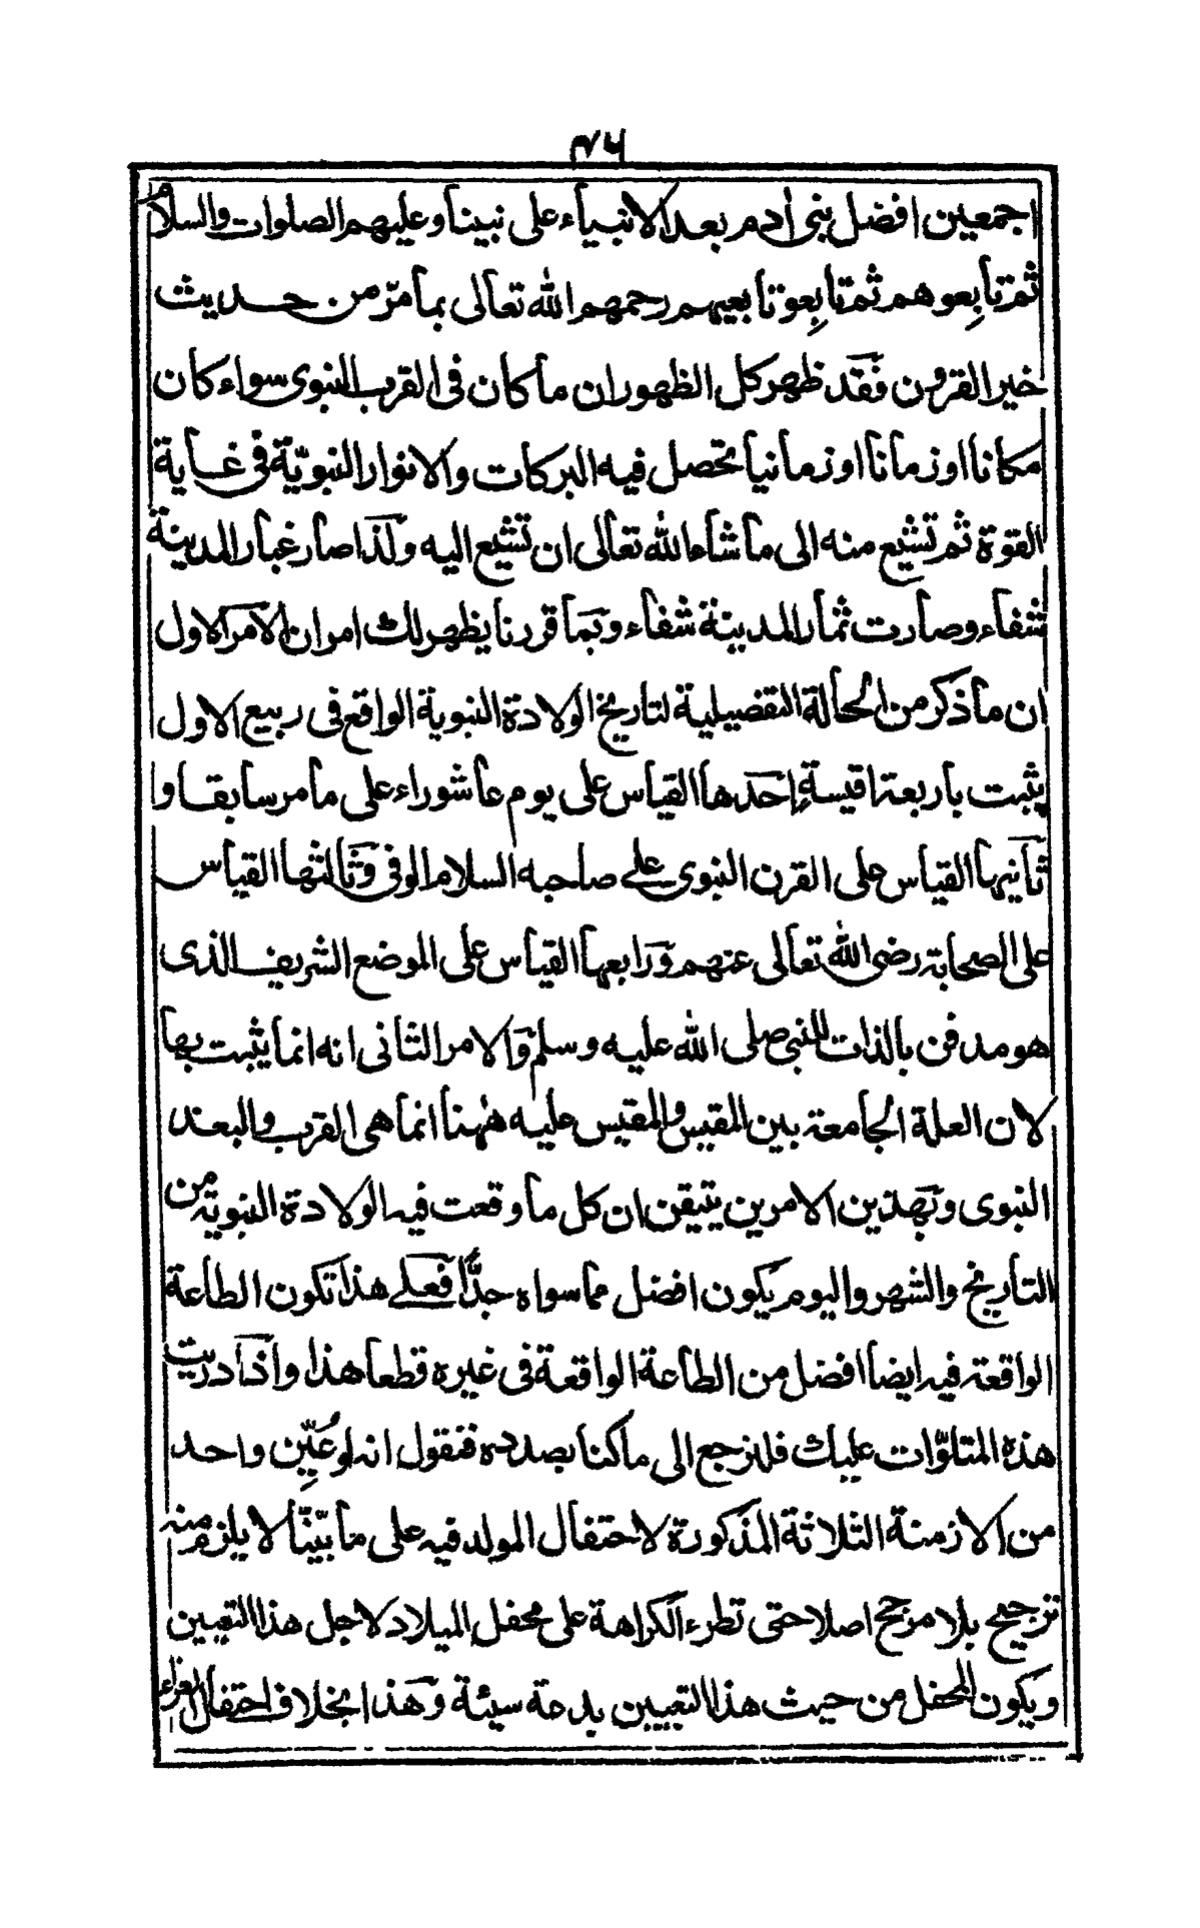 ٤٦
اجمعين افضل بنى اٰدم بعد الانبياء على نبينا وعليهم الصلوات والسلام
ثم تابِعوهم ثم تابِعو تابعيهم رحمهم الله تعالى بما مرّ من حديث
خير القرون فقد ظهر كل الظهور ان ما كان فى القرب النبوى سواء كان
مكانا او زمانا او زمانيا تحصل فيه البركات والانوار النبويّة فى غاية
القوة ثم تشيع منه الى ما شاء الله تعالى ان تشيع اليه ولذا صار غبار المدينة
شفاء وصارت ثمار المدينة شفاء وبما قررنا يظهر لك امران الامر الاول
ان ما ذكر من الحالة التفضيلية لتاريخ الولادة النبوية الواقع فى ربيع الاول
يثبت باربعة اقيسةٍ احدها القياس على يوم عاشوراء على ما مر سابقا و
ثانيها القياس على القرن النبوى على صاحبه السلام الوفى وثالثها القياس
على الصحابة رضى الله تعالى عنهم ورابعها القياس على الموضع الشريف الذى
هو مدفن بالذات للنبى صلى الله عليه وسلم والامر الثانى انه انما يثبت بها
لان العلة الجامعة بين المقيس والمقيس عليه هٰهنا انما هى القرب والبعد
النبوى وبهذين الامرين يتيقن ان كل ما وقعت فيه الولادة النبوية من
التاريخ والشهر واليوم يكون افضل مما سواه جدًّا فعلى هذا تكون الطاعة
الواقعة فيه ايضا افضل من الطاعة الواقعة فى غيره قطعا هذا واذا دريت
هذه المتلوّات عليك فلنرجع الى ما كنا بصدده فنقول انه لو عُيِّن واحد
من الازمنة الثلاثة المذكورة لاحتفال المولد فيه على ما بيّنّا لا يلزم منه
ترجيح بلا مرجح اصلا حتى تطرء الكراهة على محفل الميلاد لاجل هذا التعيين
ويكون المحفل من حيث هذا التعيين بدعة سيئة وهذا بخلاف احتفال العزاء